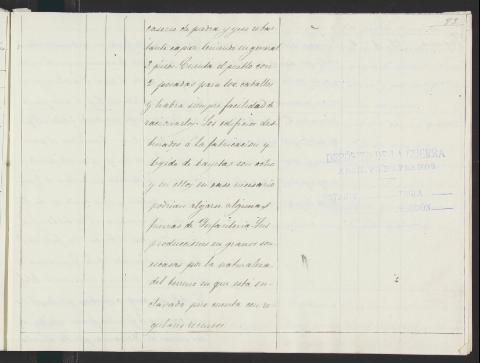 caserio de piedra y yeso es bas-
tante capaz teniendo en general
2 pisos. Cuenta el pueblo con
2 posadas para los caballos
y habra siempre facilidad de
racionarlos. Los edificios des-
tinados á la fabricacion y
tegido de bayetas son ocho
y en ellos en caso necesario
podrian alojarse algunas
fuerzas de Infanteria. Sus
producciones en granos son
escasas por la naturaleza
del terreno en que esta en-
clavado pero cuenta con re-
gulares recursos.
DEPÓSITO DE LA GUERRA